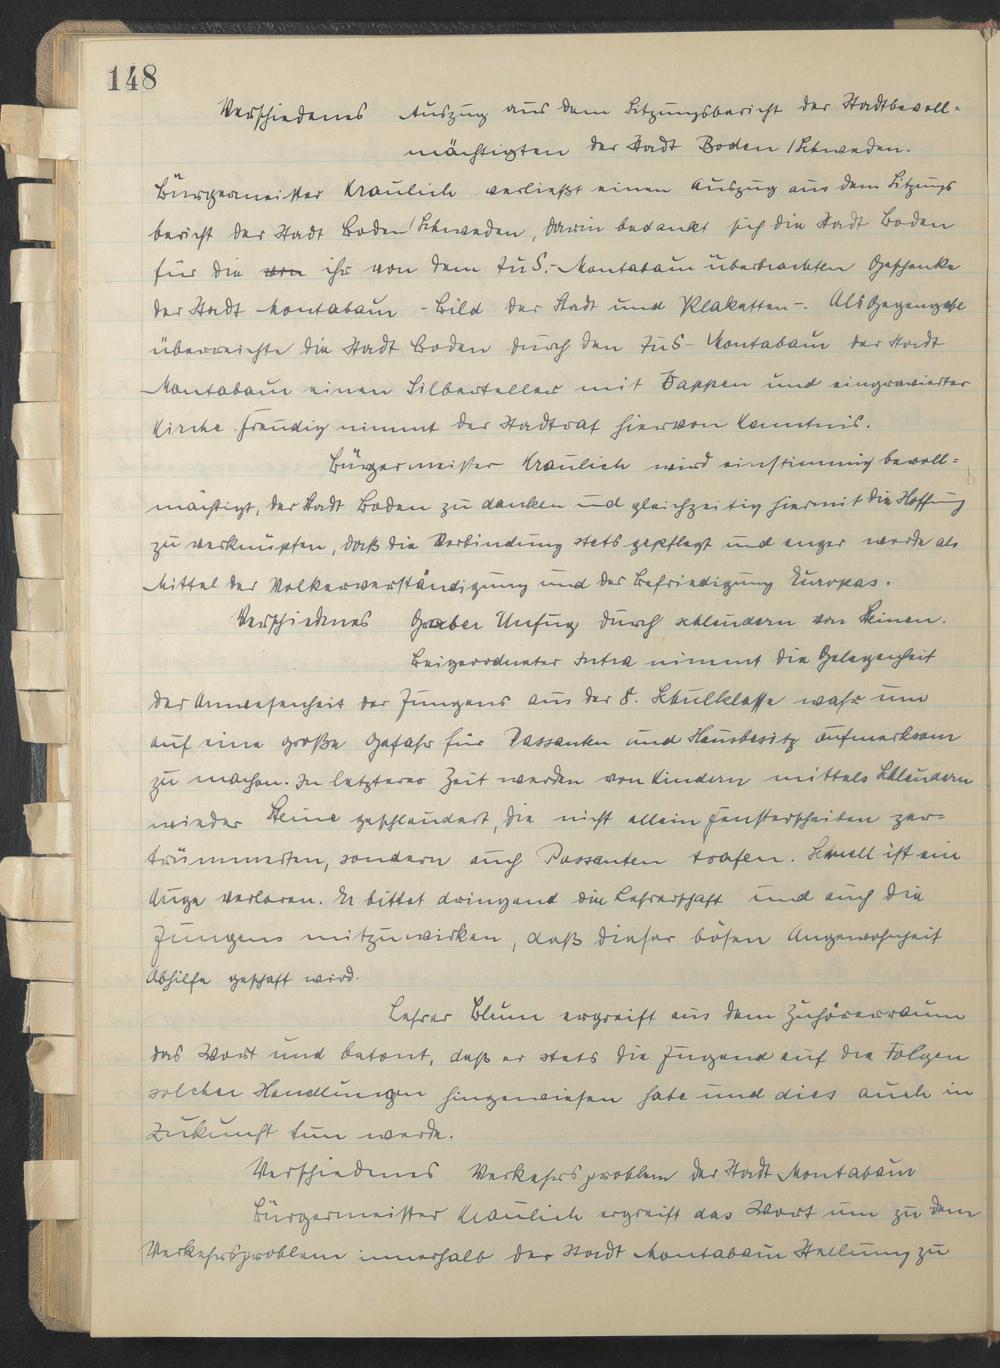 148
Verschiedenes Auszug aus dem Sitzungsbericht der Stadtbevoll=
mächtigten der Stadt Boden / Schweden.
Bürgermeister Kraulich verließt einen Auszug aus dem Sitzungs
bericht der Stadt Boden / Schweden, darin bedankt sich die Stadt Boden
für die von ihr von dem TuS.-Montabaur überbrachten Geschenke
der Stadt Montabaur - Bild der Stadt und Plaketten -. Als Gegengabe
überreichte die Stadt Boden durch den TuS-Montabaur der Stadt
Montabaur einen Silberteller mit Wappen und eingravierter
Kirche. Freudig nimmt der Stadtrat hiervon Kenntnis.
Bürgermeister Kraulich wird einstimmig bevoll=
mächtigt, der Stadt Boden zu danken und gleichzeitig hiermit die Hoffnung
zu verknüpfen, daß die Verbindung stets gepflegt und enger werde als
Mittel der Völkerverständigung und der Befriedigung Europas.
Verschiedenes Grober Unfug durch schleudern von Steinen.
Beigeordneter nimmt die Gelegenheit
der Anwesenheit der Jungens aus der 8. Schulklasse wahr um
auf eine große Gefahr für Passanten und Hausbesitz aufmerksam
zu machen. In letzterer Zeit werden von Kindern mittels Schleudern
wieder Steine geschleudert, die nicht allein Fensterscheiben zer=
trümmerten, sondern auch Passanten trafen. Schnell ist ein
Auge verloren. Er bittet dringend die Lehrerschaft und auch die
Jungens mitzuwirken, daß dieser bösen Angewohnheit
Abhilfe geschaft wird.
Lehrer Blum ergreift aus dem Zuhörerraum
das Wort und betont, daß er stets die Jugend auf die Folgen
solcher Handlungen hingewiesen habe und dies auch in
Zukunft tun werde.
Verschiedenes Verkehrsproblem der Stadt Montabaur
Bürgermeister Kraulich ergreift das Wort um zu dem
Verkehrsproblem innerhalb der Stadt Montabaur Stellung zu